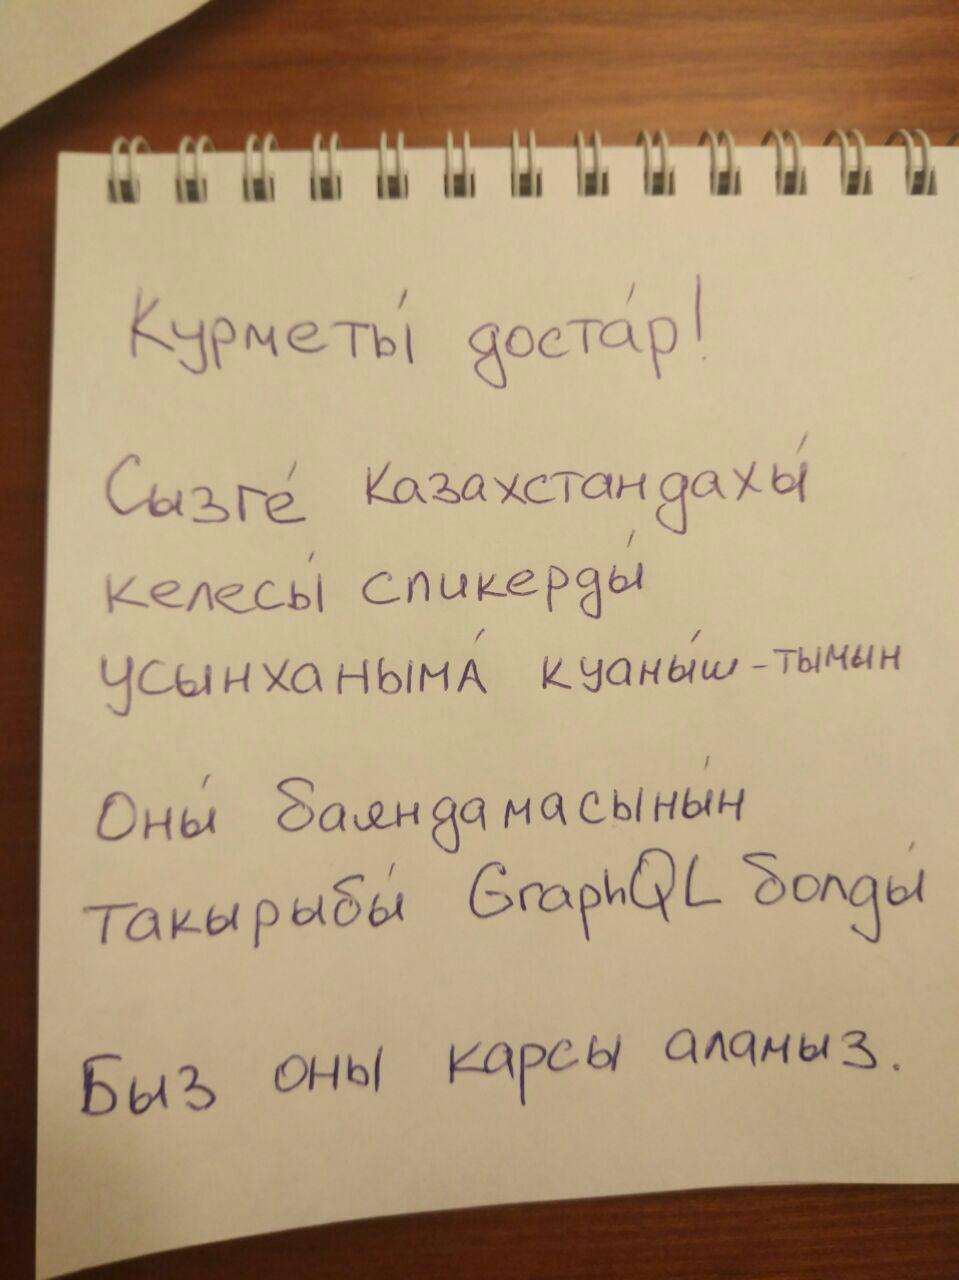 Курметы́ доста́р!
Сызге́ казахстандахы́
келесы́ спикерды́
усынханыма́ куаны́ш-тымын
Оны́ баяндамасыны́н
такырыбы́ GraphQL болды́
Быз оны карсы аламыз.